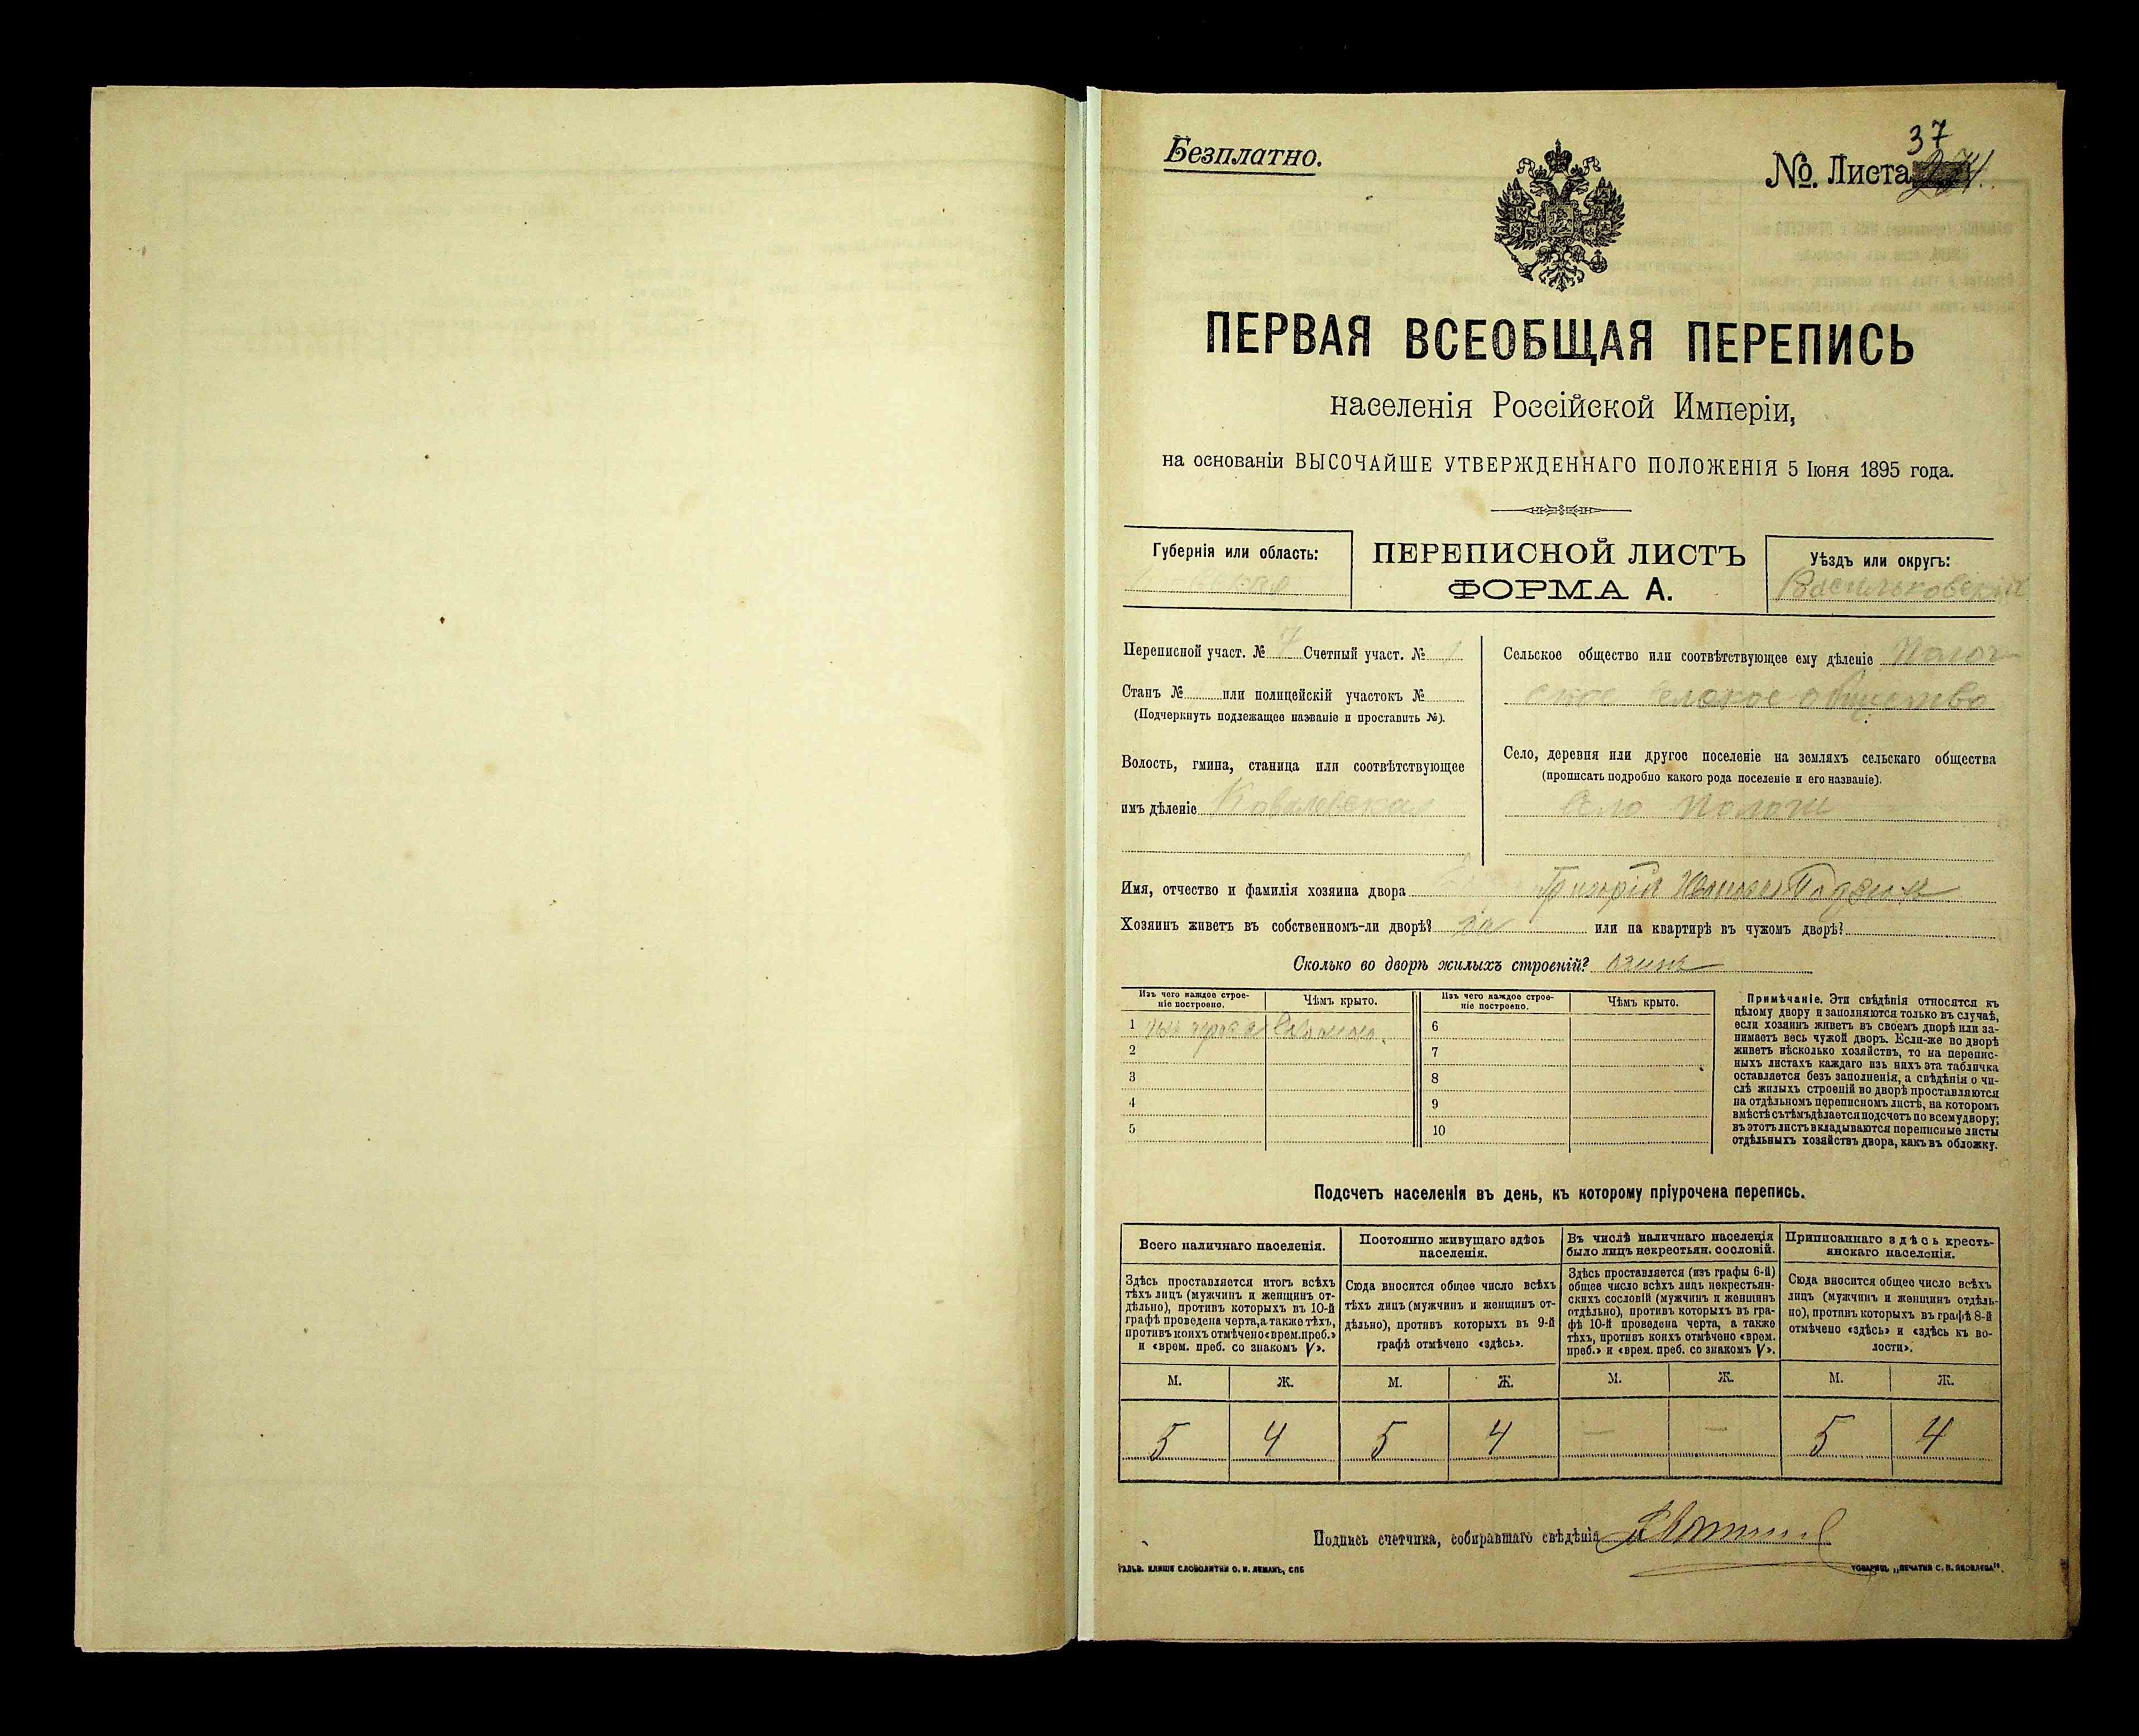 Безплатно.
37
№. Листа
ПЕРВАЯ ВСЕОБЩАЯ ПЕРЕПИСЬ
населенія Россійской Имперіи,
на основаніи ВЫСОЧАЙШЕ УТВЕРЖДЕННАГО ПОЛОЖЕНІЯ 5 Іюня 1895 года.
Губернія или область:
ПЕРЕПИСНОЙ ЛИСТЪ
ФОРМА А.
Уѣздъ или округъ:
Васильковскій
Переписной участ. № 7 Счетный участ. № 1
Станъ № или полицейскій участокъ №
(Подчеркнуть подлежащее названіе и проставить №).
Волость, гмина, станица или соотвѣтствующее
имъ дѣленіе Ковалевская
Сельское общество или соотвѣтствующее ему дѣленіе Полог
ское селское общество
Село, деревня или другое поселеніе на земляхъ сельскаго общества
(прописать подробно какого рода поселеніе и его названіе).
Село Пологи
Имя, отчество и фамилія хозяина двора Григорій
Хозяинъ живетъ въ собственномъ-ли дворѣ? или на квартирѣ въ чужомъ дворѣ?
Сколько во дворѣ жилыхъ строеній? одинъ
Изъ чего каждое строе-
ніе построено.
Чѣмъ крыто.
Изъ чего каждое строе-
ніе построено.
Чѣмъ крыто.
1 соломою.
2
3
4
5
6
7
8
9
10
Примѣчаніе. Эти свѣдѣнія относятся къ
цѣлому двору и заполняются только въ случаѣ,
если хозяинъ живетъ въ своемъ дворѣ или за-
нимаетъ весь чужой дворъ. Если-же во дворѣ
живетъ нѣсколько хозяйствъ, то на перепис-
ныхъ листахъ каждаго изъ нихъ эта табличка
оставляется безъ заполненія, а свѣдѣнія о чи-
слѣ жилыхъ строеній во дворѣ проставляются
на отдѣльномъ переписномъ листѣ, на которомъ
вмѣстѣ съ тѣмъ дѣлается подсчетъ по всему двору;
въ этотъ листъ вкладываются переписные листы
отдѣльныхъ хозяйствъ двора, какъ въ обложку.
Подсчетъ населенія въ день, къ которому пріурочена перепись.
Всего наличнаго населенія.
Здѣсь проставляется итогъ всѣхъ
тѣхъ лицъ (мужчинъ и женщинъ от-
дѣльно), противъ которыхъ въ 10-й
графѣ проведена черта, а также тѣхъ,
противъ коихъ отмѣчено «врем. преб.»
и «врем. преб. со знакомъ V».
М. Ж.
5 4
Постоянно живущаго здѣсь
населенія.
Сюда вносится общее число всѣхъ
тѣхъ лицъ (мужчинъ и женщинъ от-
дѣльно), противъ которыхъ въ 9-й
графѣ отмѣчено «здѣсь».
М. Ж.
5 4
Въ числѣ наличнаго населенія
было лицъ некрестьян. сословій.
Здѣсь проставляется (изъ графы 6-й)
общее число всѣхъ лицъ некрестьян-
скихъ сословій (мужчинъ и женщинъ
отдѣльно), противъ которыхъ въ гра-
фѣ 10-й проведена черта, а также
тѣхъ, противъ коихъ отмѣчено «врем.
преб.» и «врем. преб. со знакомъ V».
М. Ж.
— —
Приписаннаго здѣсь кресть-
янскаго населенія.
Сюда вносится общее число всѣхъ
лицъ (мужчинъ и женщинъ отдѣль-
но), противъ которыхъ въ графѣ 8-й
отмѣчено «здѣсь» и «здѣсь къ во-
лости».
М. Ж.
5 4
Подпись счетчика, собиравшаго свѣдѣнія
ГАЛЬВ. КЛИШЕ СЛОВОЛИТНИ О. И. ЛЕМАНЪ, СПБ
ТОВАРИЩ. „ПЕЧАТНЯ С. П. ЯКОВЛЕВА".